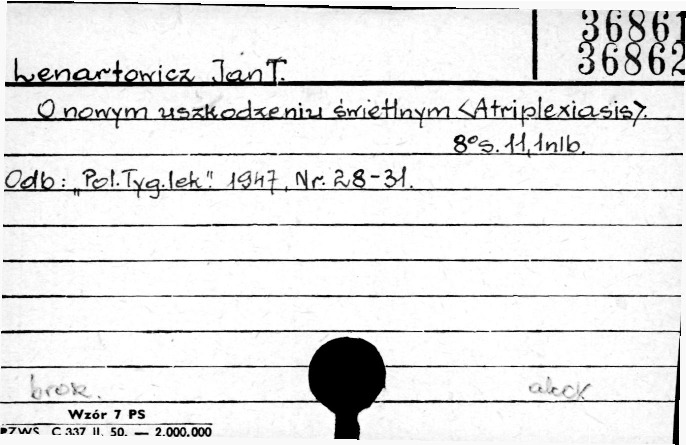 36861
36862
Lenartowicz Jan T.
O nowym uszkodzeniu świetlnym <Atriplexiasis>.
8° s. 11, 1 nlb.
Odb: "Pol. Tyg. lek". 1947, Nr. 28-31.
brosz.
akc
Wzór 7 PS
PZWS. C 337 II. 50. — 2.000.000